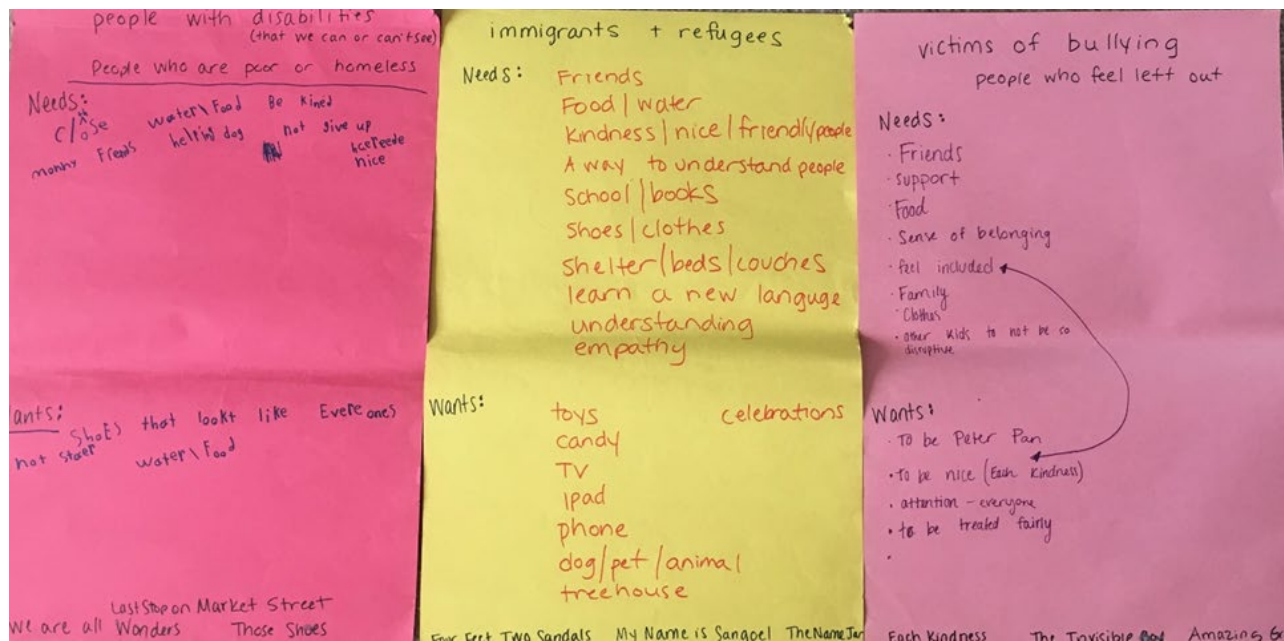 people with disabilities
(that we can or can't see)
People who are poor or homeless
Needs:
close
water\Food Be kined
monny Freads helting dog not give up
nice
ants:
Shoes that lookt like Evereones
not staer water\Food
Last Stop on Market Street
We are all Wonders Those Shoes
immigrants + refugees
Needs: Friends
Food/water
Kindness/nice/friendly people
A way to understand people
School/books
Shoes/clothes
Shelter/beds/couches
learn a new languge
understanding
empathy
Wants: toys celebrations
candy
TV
ipad
phone
dog/pet/animal
treehouse
Four Feet Two Sandals My Name is Sangoel The Name Jar
victims of bullying
people who feel left out
Needs:
· Friends
· support
· Food
· Sense of belonging
· feel included
· Family
· Clothes
· other kids to not be so
disruptive
Wants:
· To be Peter Pan
· To be nice (Each Kindness)
· attention - everyone
· to be treated fairly
·
Each Kindness The Invisible Boy Amazing